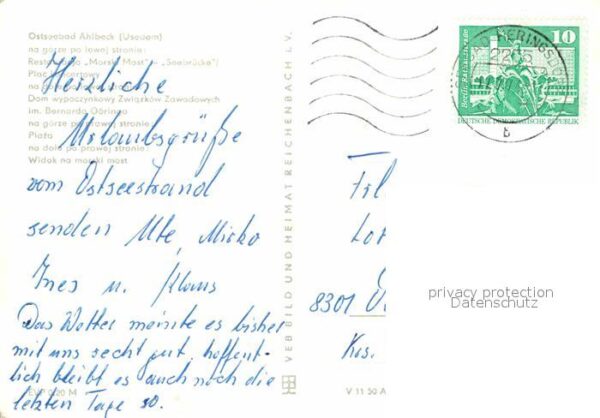 Ostseebad Ahlbeck (Usedom)
na górze po lewej stronie:
Restauracja „Morski Most" – „Seebrücke")
Plac
Dom wypoczynkowy Związków Zawodowych
im. Bernarda Göringa
na górze po prawej stronie:
Plaża
na dole po prawej stronie:
Widok na morski most
Herzliche
Urlaubsgrüße
vom Ostseestrand
senden Ute, Mirko
Ines u. Klaus
Das Wetter meinte es bisher
mit uns recht gut, hoffent-
lich bleibt es auch noch die
letzten Tage so.
EVP 0,20 M
VEB BILD UND HEIMAT REICHENBACH i. V.
V 11 50 A
HERINGSDORF
10
Berlin, Rathausstraße
DEUTSCHE DEMOKRATISCHE REPUBLIK
b
8301
Krs.
privacy protection
Datenschutz